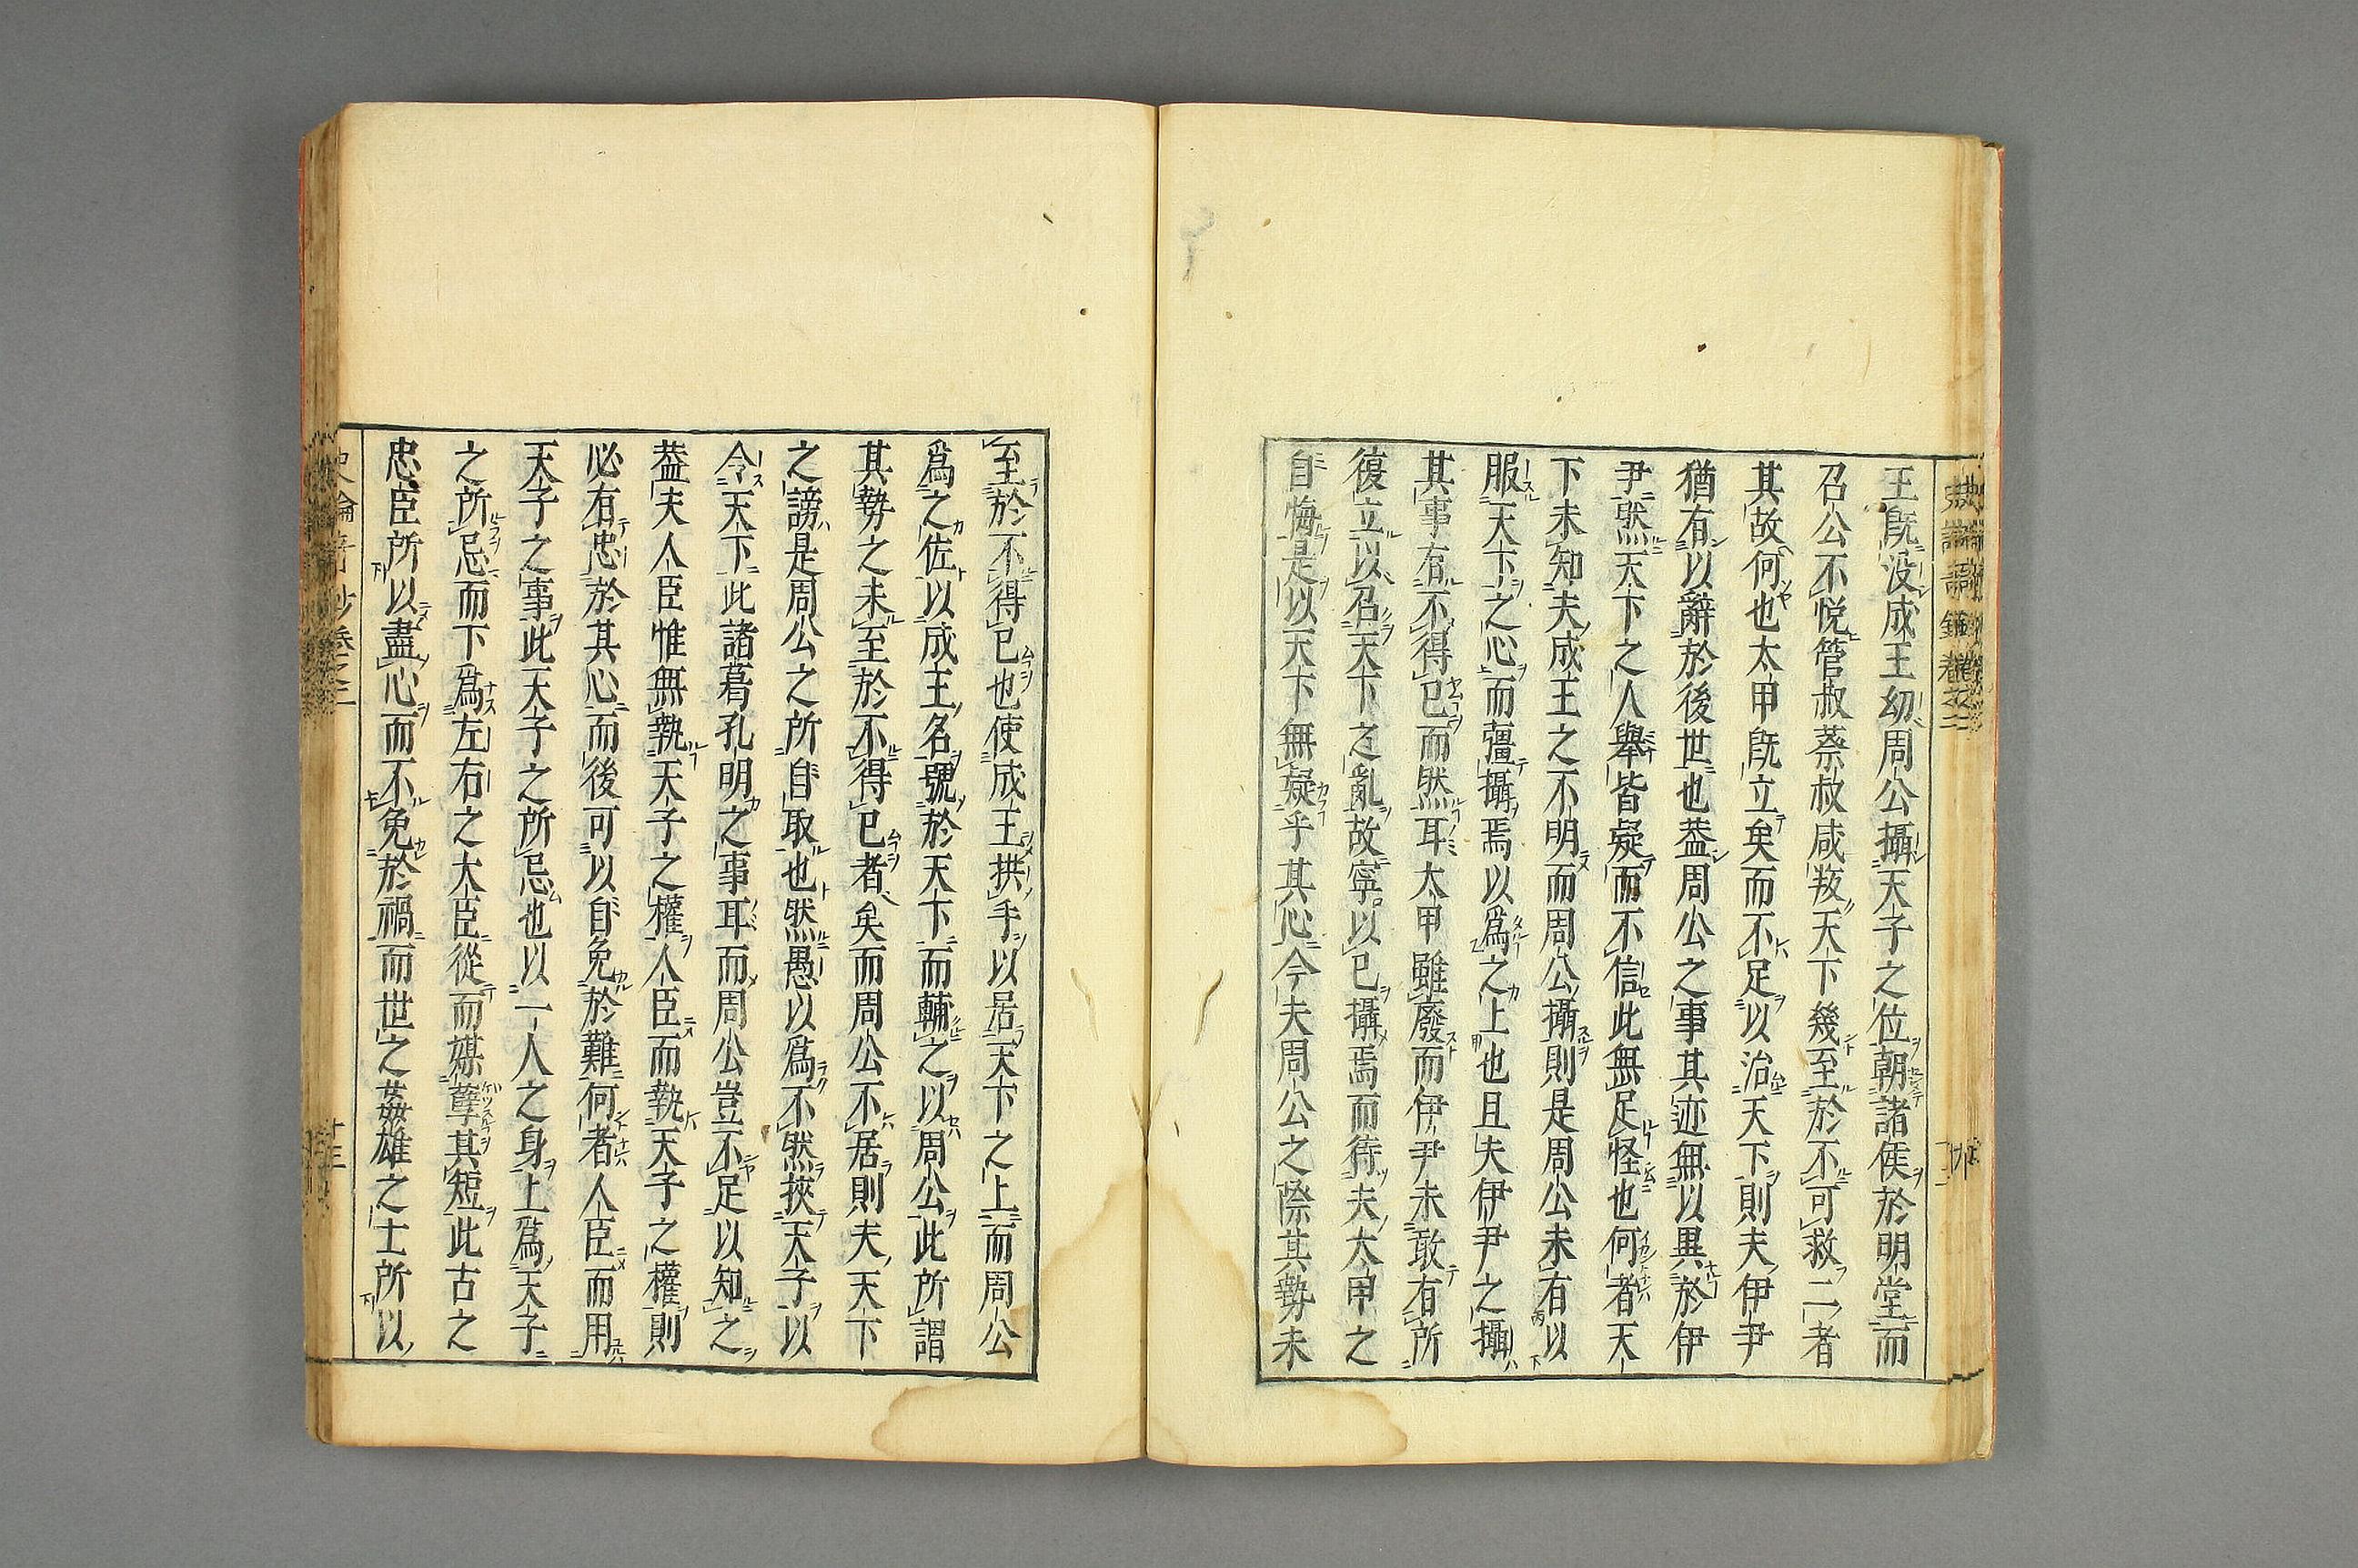 王既没成王幼周公攝天子之位朝諸侯於明堂而
召公不悅管叔蔡叔咸叛天下幾至於不可救二者
其故何也太甲既立矣而不足以治天下則夫伊尹
猶有以辭於後世也葢周公之事其迹無以異於伊
尹然天下之人舉皆疑而不信此無足怪也何者天
下未知夫成王之不明而周公攝則是周公未有以
服天下之心而彊攝焉以爲之上也且夫伊尹之攝
其事有不得已而然耳太甲雖廢而伊尹未敢有所
復立以召天下之亂故寧以已攝焉而待夫太甲之
自悔是以天下無疑乎其心今夫周公之際其勢未
至於不得已也使成王拱手以居天下之上而周公
爲之佐以成王名號於天下而輔之以周公此所謂
其勢之未至於不得已者矣而周公不居則夫天下
之謗是周公之所自取也然愚以爲不然挾天子以
令天下此諸葛孔明之事耳而周公豈不足以知之
葢夫人臣惟無執天子之權人臣而執天子之權則
必有忠於其心而後可以自免於難何者人臣而用
天子之事此天子之所忌也以一人之身上爲天子
之所忌而下爲左右之大臣從而媒孽其短此古之
忠臣所以盡心而不免於禍而世之姦雄之士所以
卷之三
十三